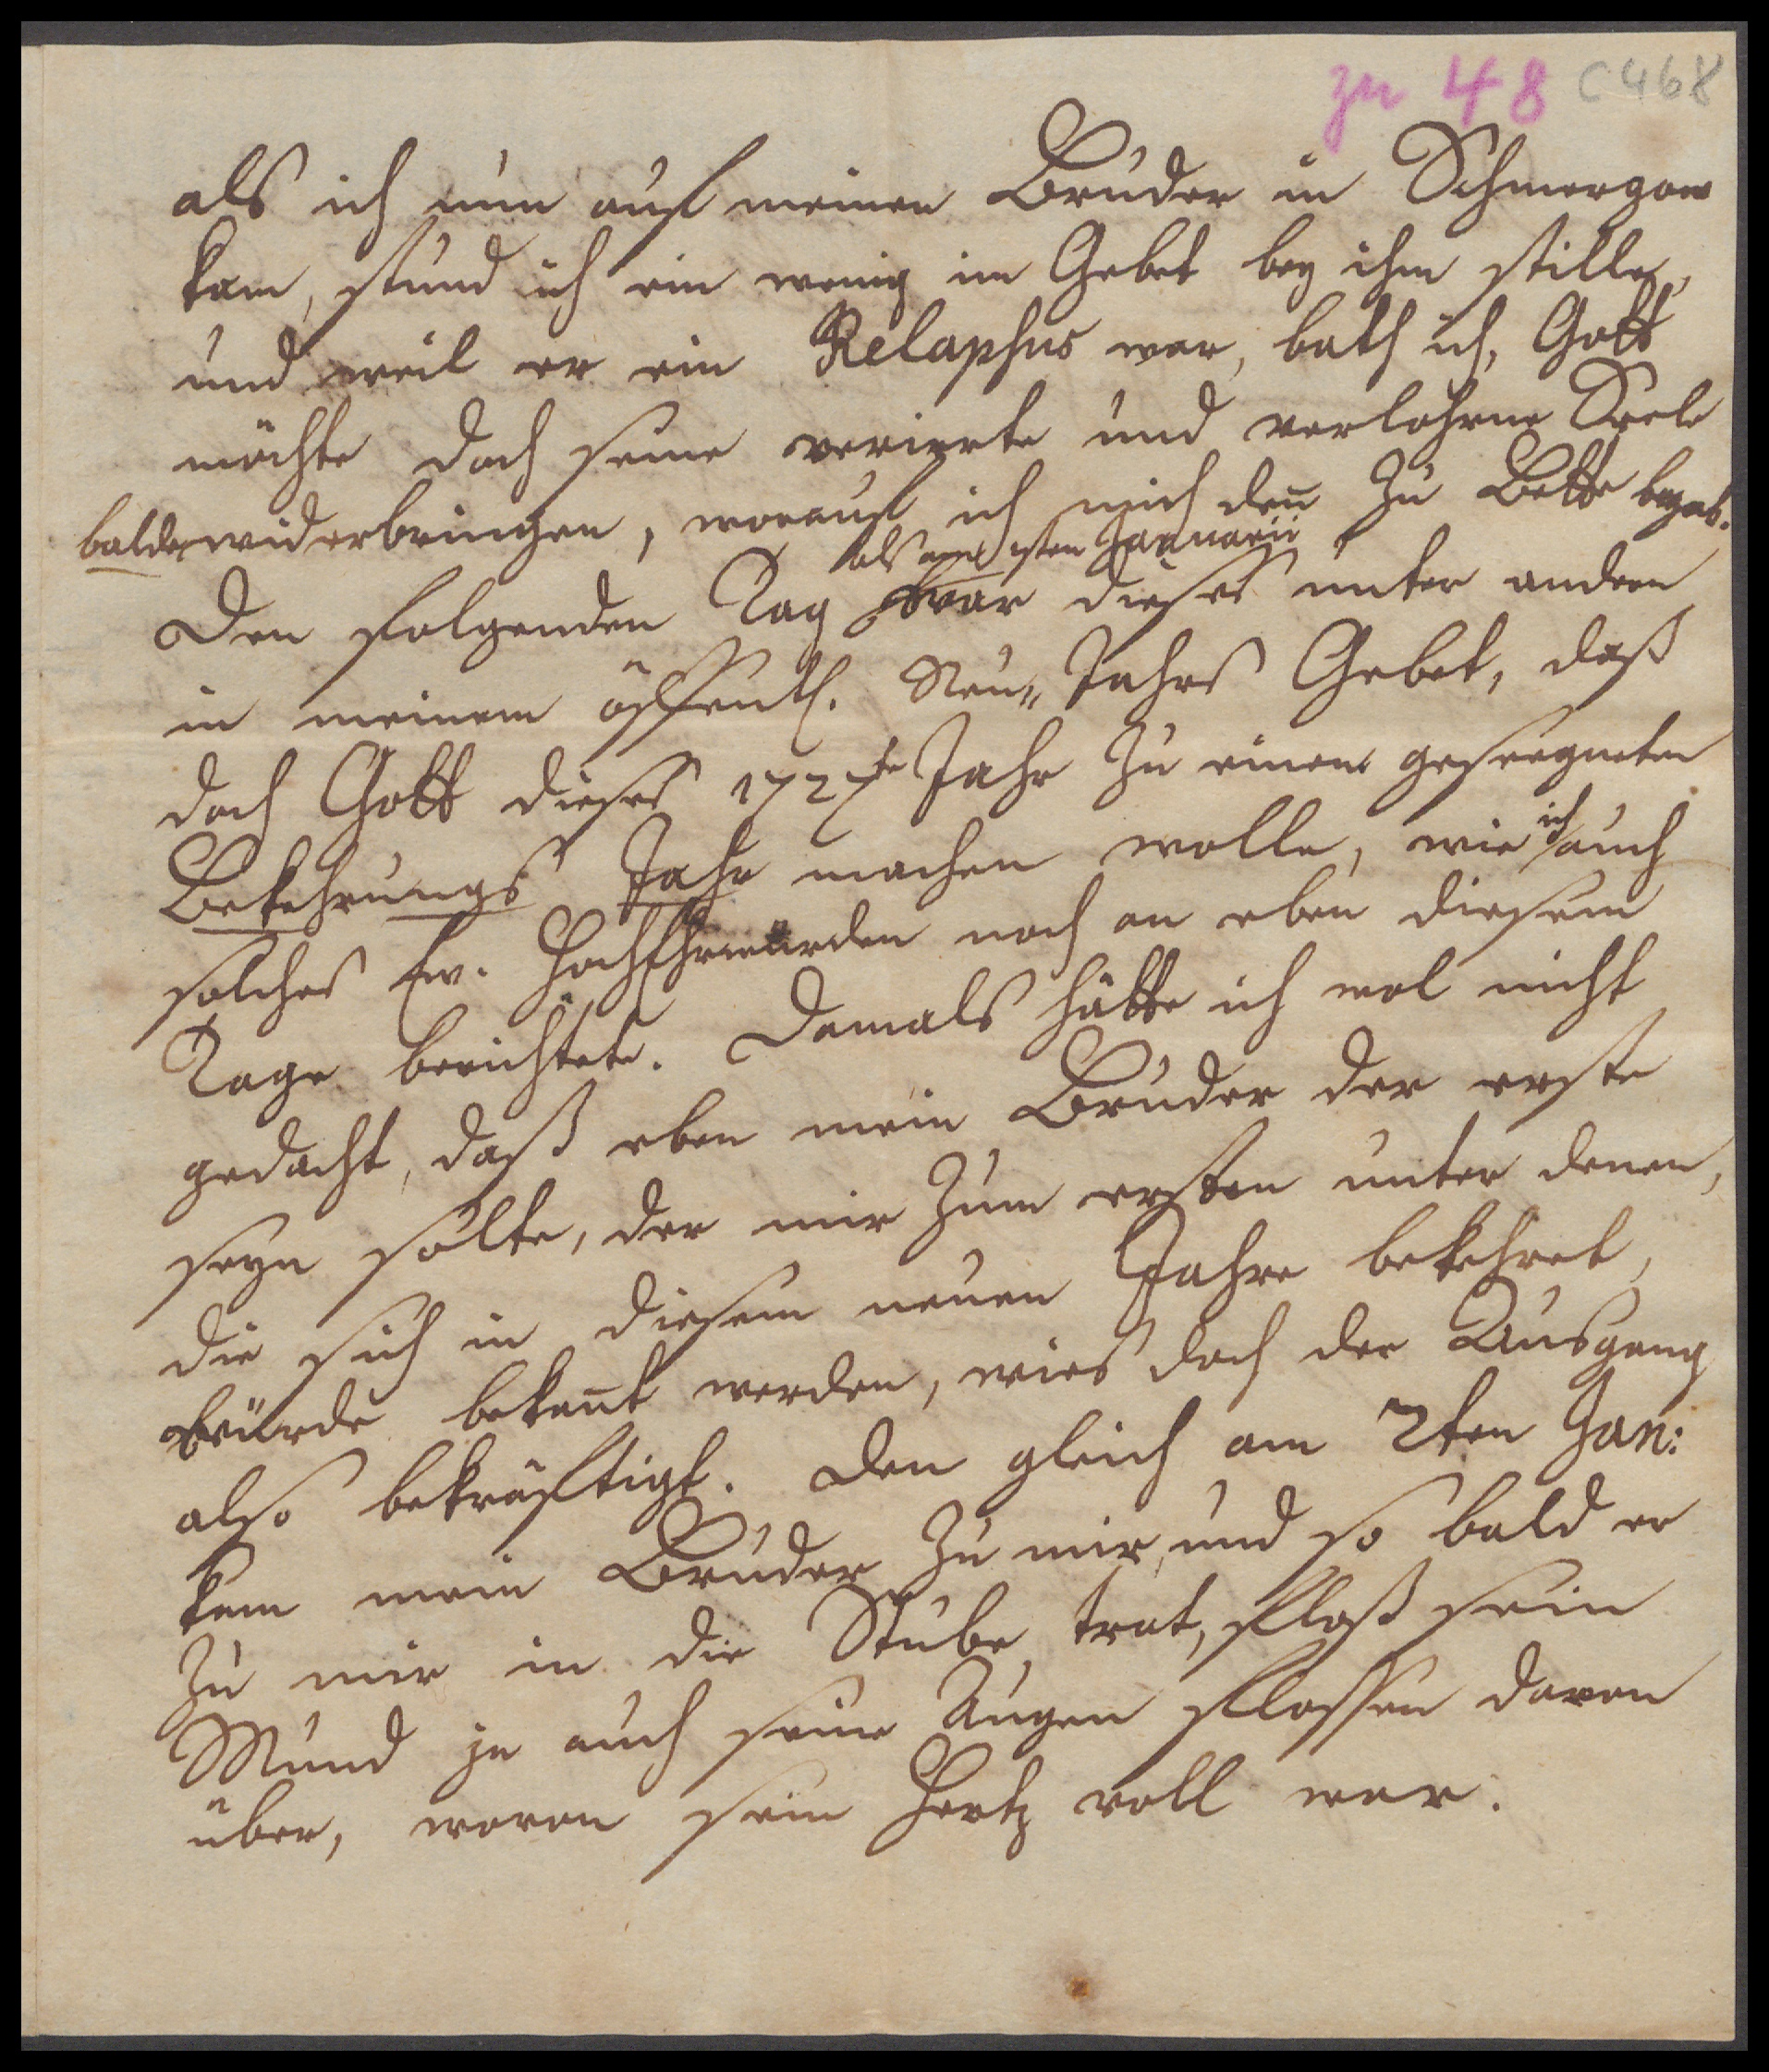 zu 48 C 468
als ich nun auf meinen Bruder in Schmergow
kam, stund ich ein wenig im Gebet bey ihm stille,
und weil er ein Relaphus war, bath ich, Gott
möchte doch seine verirrte und verlohrne Seele
balde widerbringen, worauf ich mich den̄ zu Bette begab.
als am 1sten Januarii
Den folgenden Tag war dieses unter andern
in meinem öffentl. Neu-Jahrs Gebet, daß
doch Gott dieses 1727te Jahr zu einem geseegneten
Bekehrungs Jahr machen wolle, wie ich auch
solches Ew. HochEhrwürden noch an eben diesem
Tage berichtete. Damals hätte ich wol nicht
gedacht, daß eben mein Bruder der erste
seyn solte, der mir zum ersten unter denen,
die sich in diesem neuen Jahre bekehret,
würde bekan̄t werden, wies doch der Ausgang
also bekräftigt. Den gleich am 2ten Jan:
kam mein Bruder zu mir, und so bald er
zu mir in die Stube trat, floß sein
Mund ja auch seine Augen flossen davon
über, wovon sein Hertz voll war.